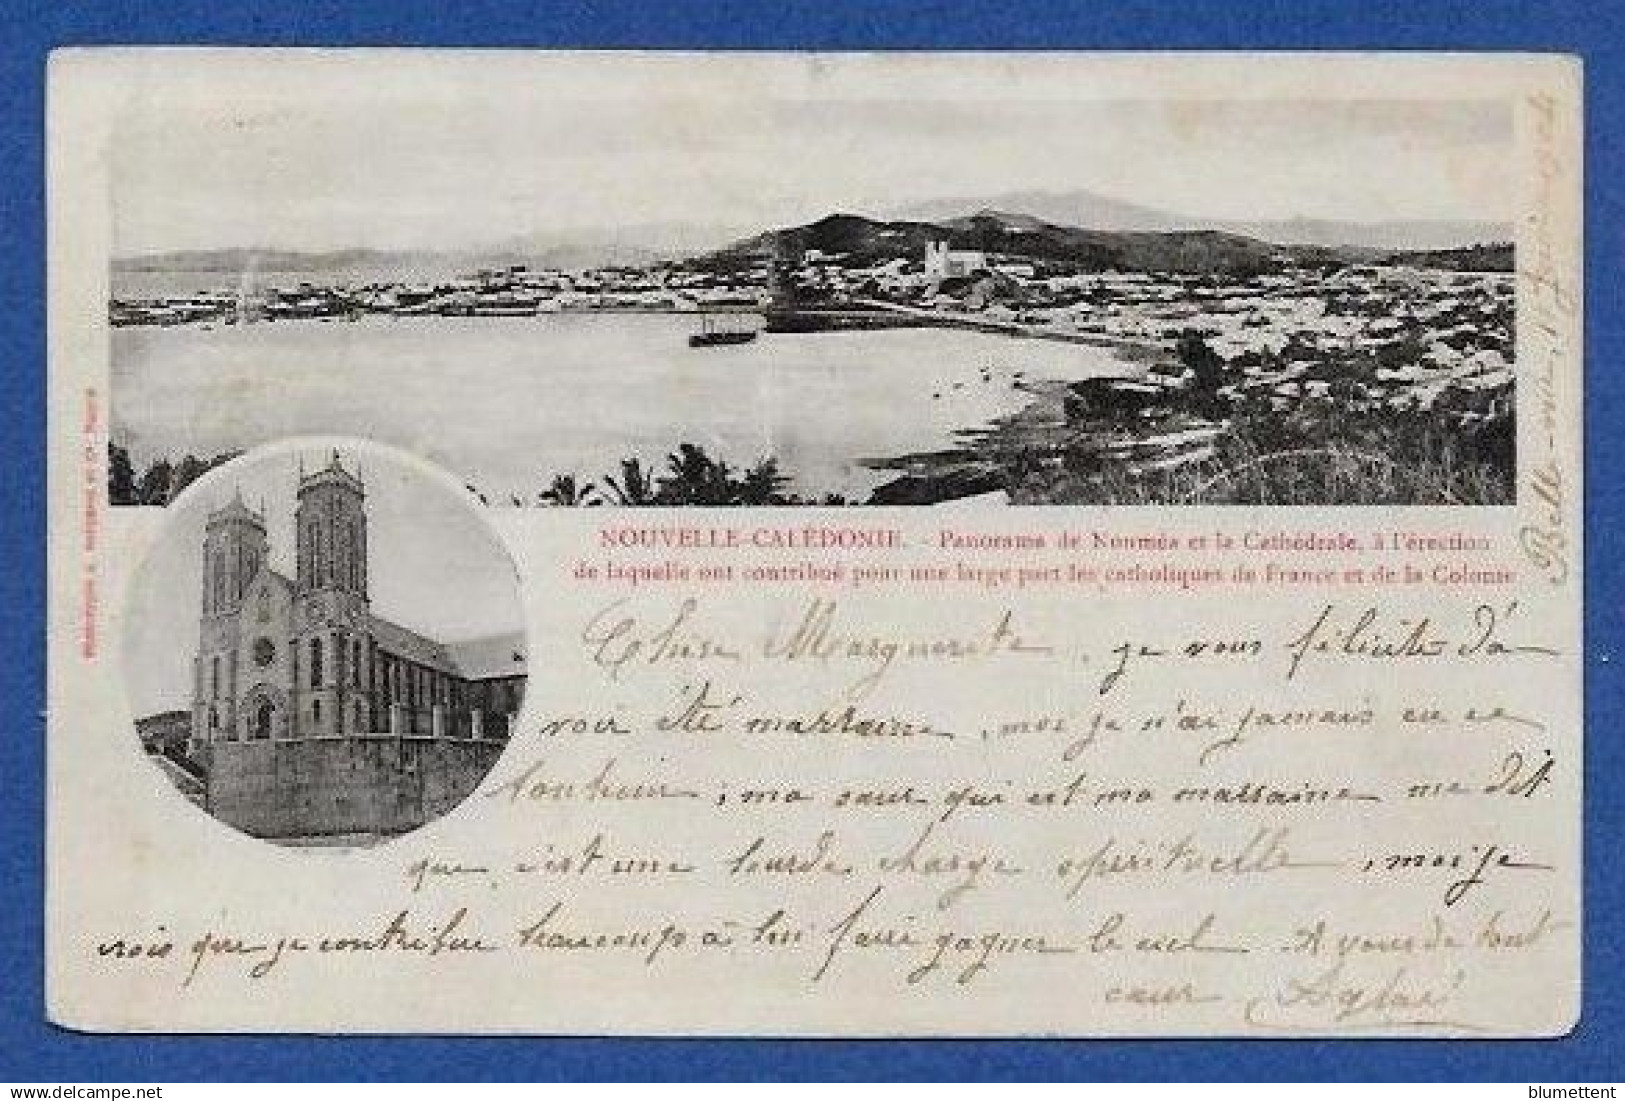 NOUVELLE-CALÉDONIE. - Panorama de Nouméa et la Cathédrale, à l'érection
de laquelle ont contribué pour une large part les catholiques de France et de la Colonie
Belle-vue, 17 1904
Chère Marguerite, je vous félicite d'a
voir été marraine, moi je n'ai jamais eu ce
bonheur; ma sœur qui est ma marraine me dit
que c'est une lourde charge spirituelle, moi je
crois que je contribue beaucoup à lui faire gagner le ciel. A vous de tout
cœur Aglaé
blumettent